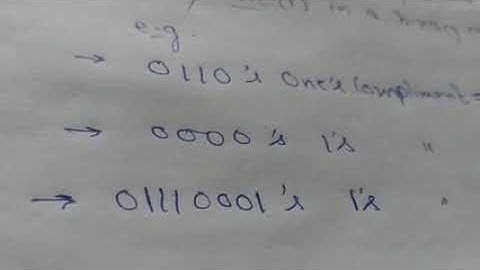 (1) in a binary
e.g.
→ 0110's One's Compliment =
→ 0000's 1's "
→ 01110001's 1's "